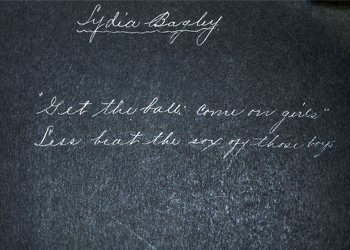 Lydia Bagley
"Get the ball; come on girls"
Less beat the sox off those boys